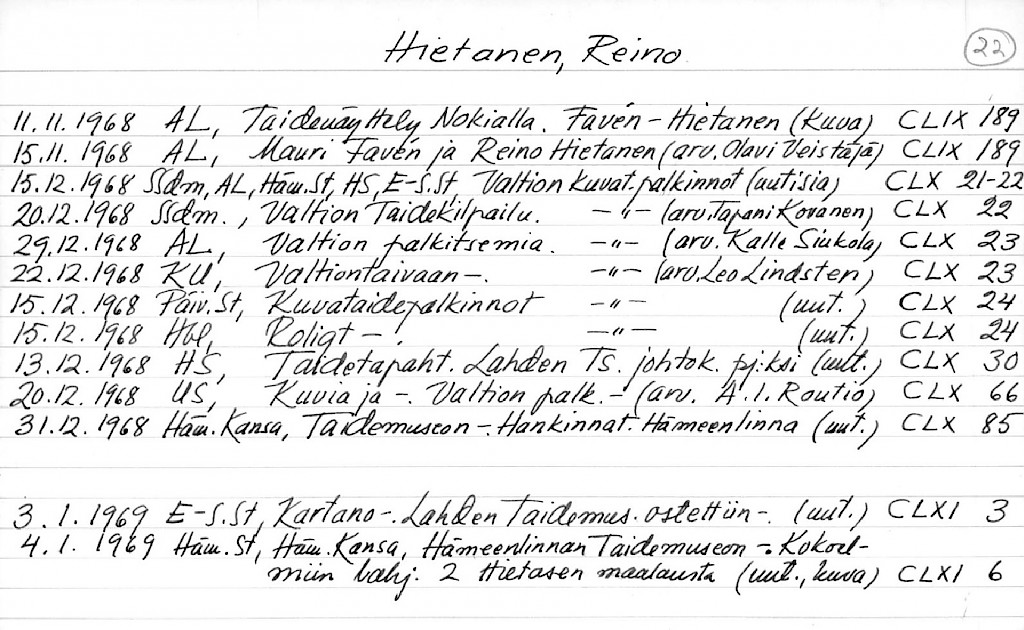 Hietanen, Reino
22
11.11.1968 AL, Taidenäyttely Nokialla. Favén - Hietanen (kuva) CLIX 189
15.11.1968 AL, Mauri Favén ja Reino Hietanen (arv. Olavi Veistäjä) CLIX 189
15.12.1968 SSdm, AL, Häm.St, HS, E-S.St, Valtion kuvat.palkinnot (uutisia) CLX 21-22
20.12.1968 SSdm., Valtion Taidekilpailu. -"- (arv. Tapani Kovanen) CLX 22
29.12.1968 AL, Valtion palkitsemia. -"- (arv. Kalle Siukola) CLX 23
22.12.1968 KU, Valtiontaivaan -. -"- (arv. Leo Lindsten) CLX 23
15.12.1968 Päiv.St, Kuvataidepalkinnot -"- (uut.) CLX 24
15.12.1968 Hbl, Roligt -. -"- (uut.) CLX 24
13.12.1968 HS, Taidetapaht. Lahden Ts. johtok. pj:ksi (uut.) CLX 30
20.12.1968 US, Kuvia ja -. Valtion palk. - (arv. A.I. Routio) CLX 66
31.12.1968 Häm.Kansa, Taidemuseon -. Hankinnat - Hämeenlinna (uut.) CLX 85
3.1.1969 E-S.St, Kartano -. Lahden Taidemus. ostettiin -. (uut.) CLXI 3
4.1.1969 Häm.St, Häm.Kansa, Hämeenlinnan Taidemuseon -. Kokoel-
miin lahj. 2 Hietasen maalausta (uut., kuva) CLXI 6